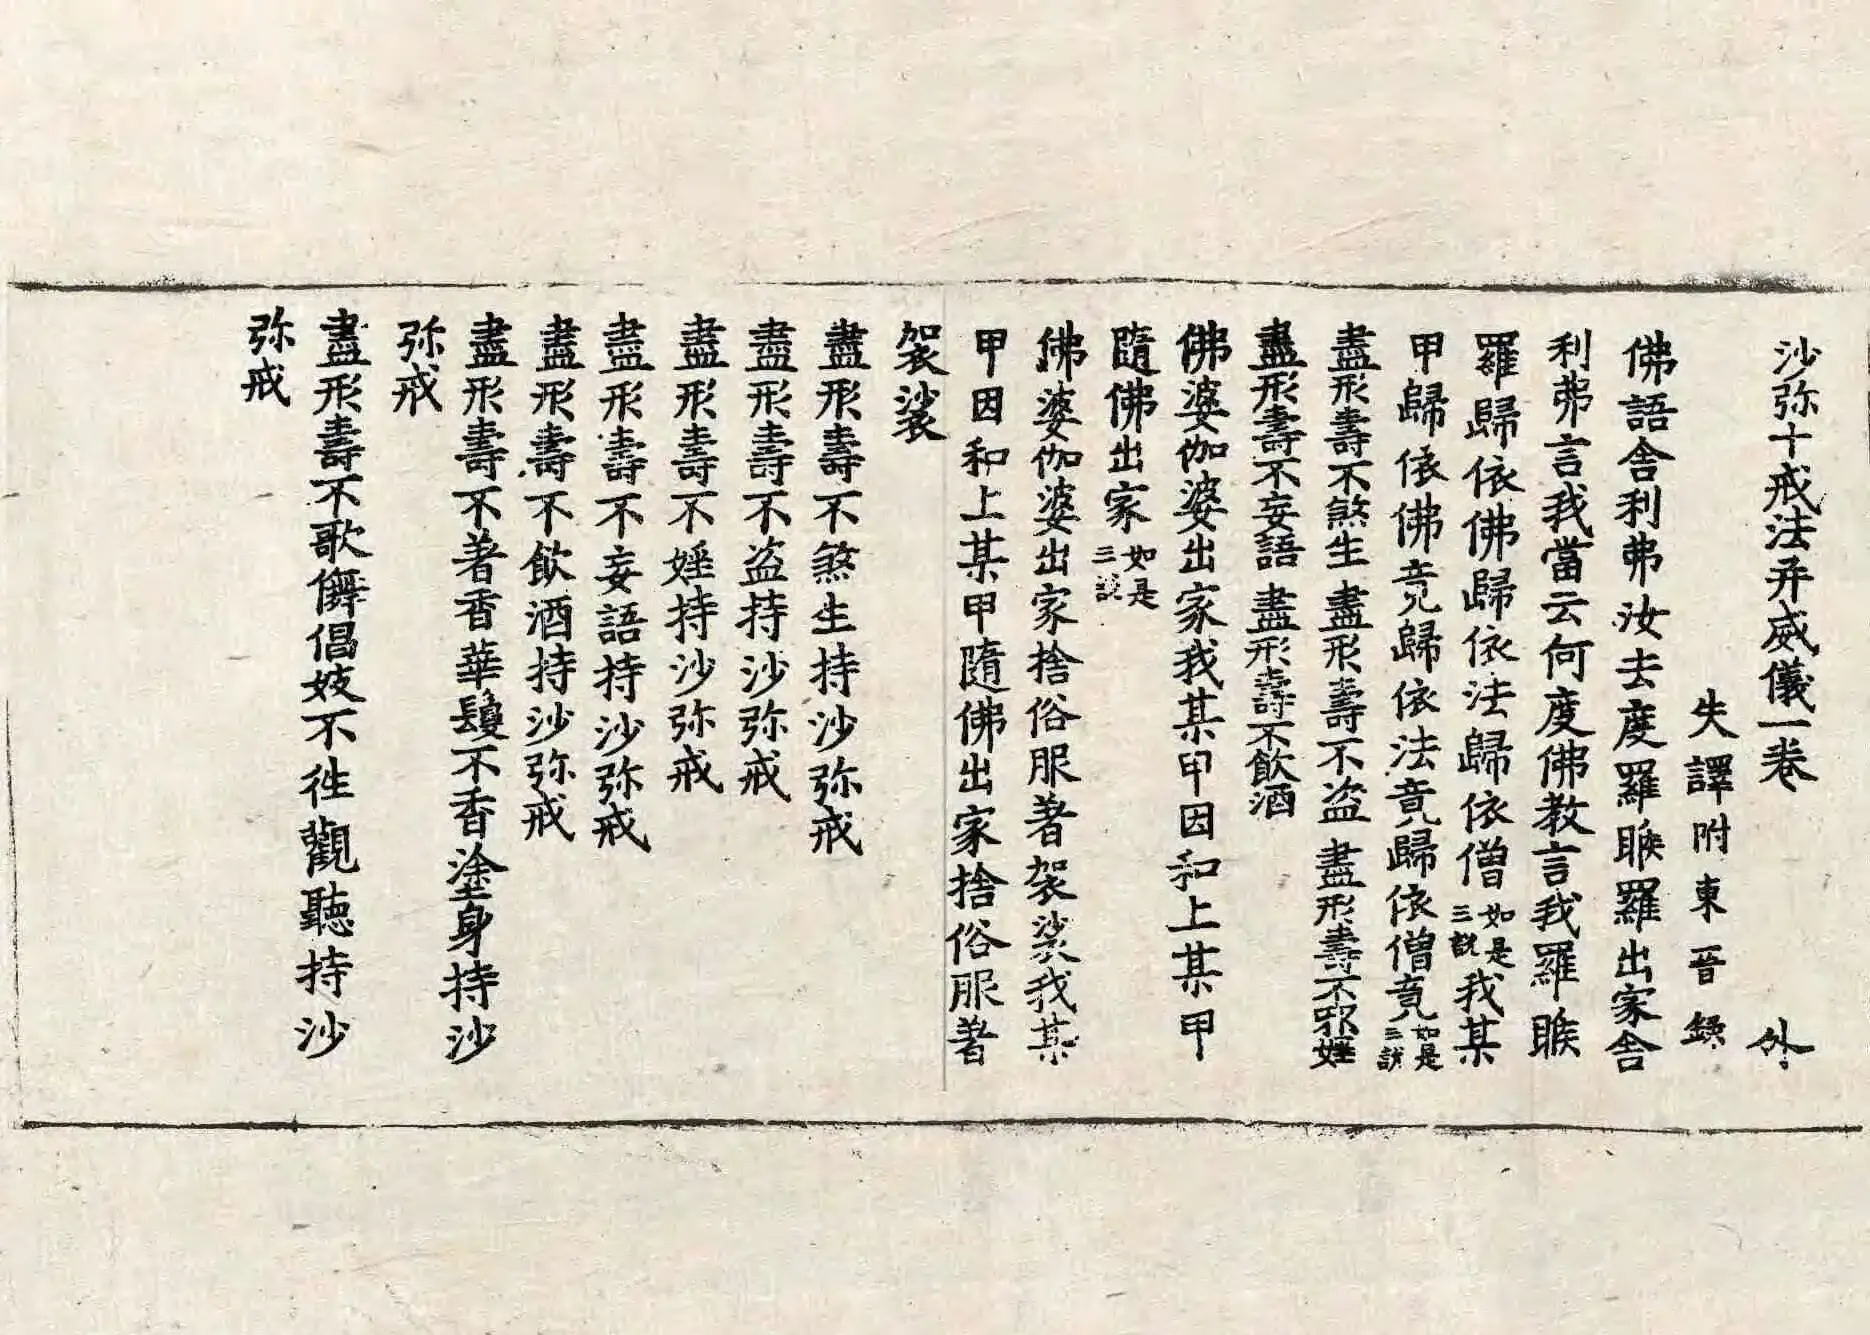 沙弥十戒法并威儀一卷 外
失譯附東晉錄
佛語舍利弗汝去度羅睺羅出家舍
利弗言我當云何度佛教言我羅睺
羅歸依佛歸依法歸依僧如是三說我某
甲歸依佛竟歸依法竟歸依僧竟如是三說
盡形壽不煞生盡形壽不盗盡形壽不邪婬
盡形壽不妄語盡形壽不飲酒
佛婆伽婆出家我某甲因和上某甲
隨佛出家如是三說
佛婆伽婆出家捨俗服著袈裟我某
甲因和上某甲隨佛出家捨俗服著
袈裟
盡形壽不煞生持沙弥戒
盡形壽不盗持沙弥戒
盡形壽不婬持沙弥戒
盡形壽不妄語持沙弥戒
盡形壽不飲酒持沙弥戒
盡形壽不著香華鬘不香塗身持沙
弥戒
盡形壽不歌儛倡妓不徃觀聽持沙
弥戒